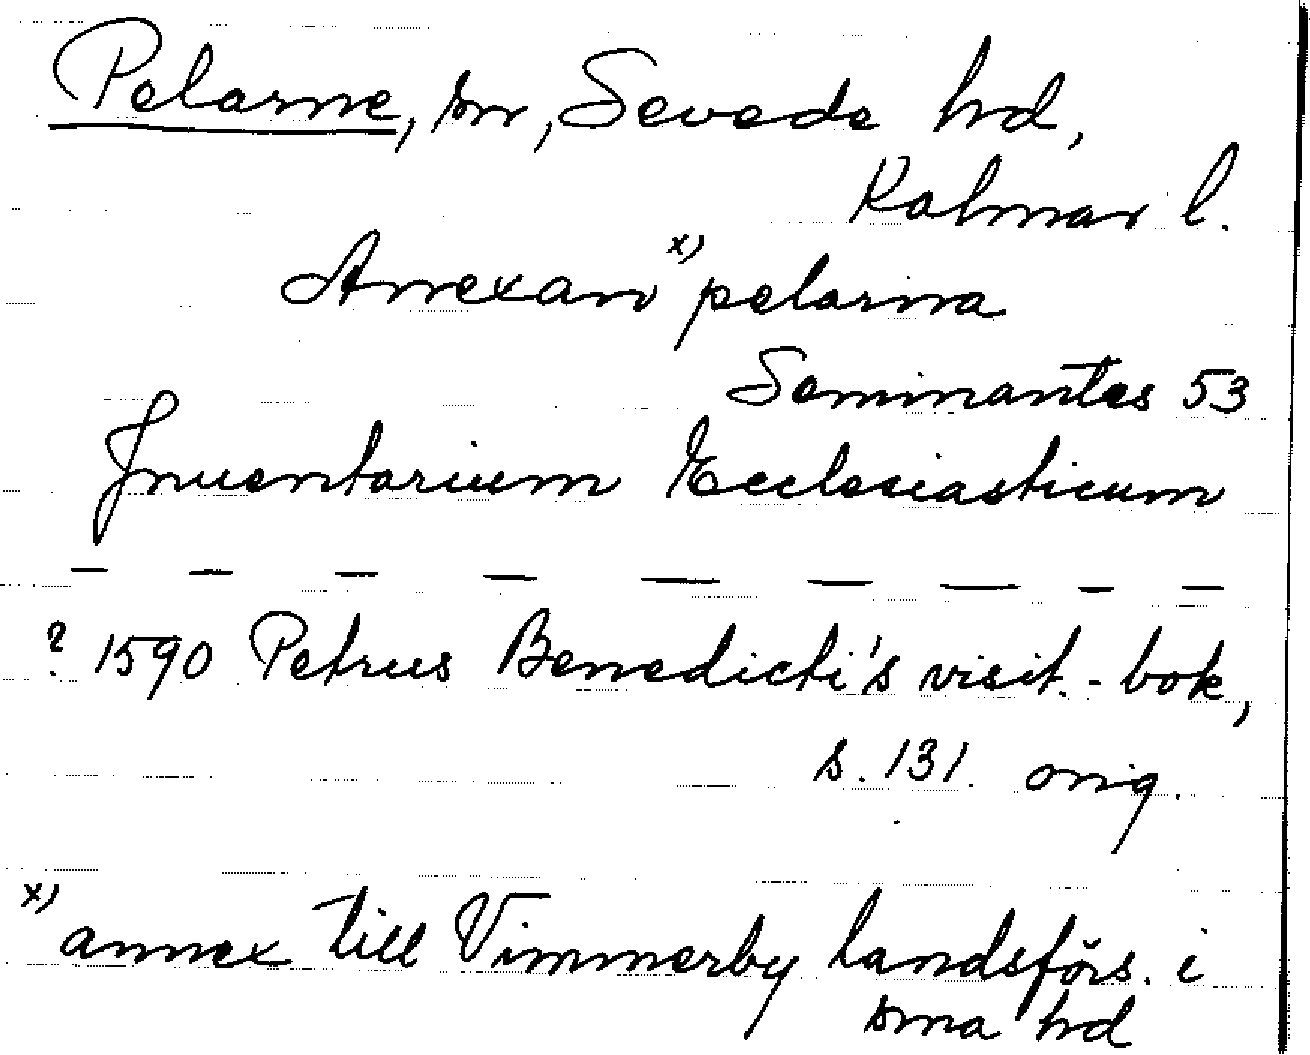 Pelarne, sn, Sevede hd,
Kalmar l.
Annexan x) pelarna
Seminantes 53
Inuentarium Ecclesiasticum
— — — — — — — — —
? 1590 Petrus Benedicti's visit.-bok,
s. 131. orig.
x) annex till Vimmerby landsförs. i
sma hd